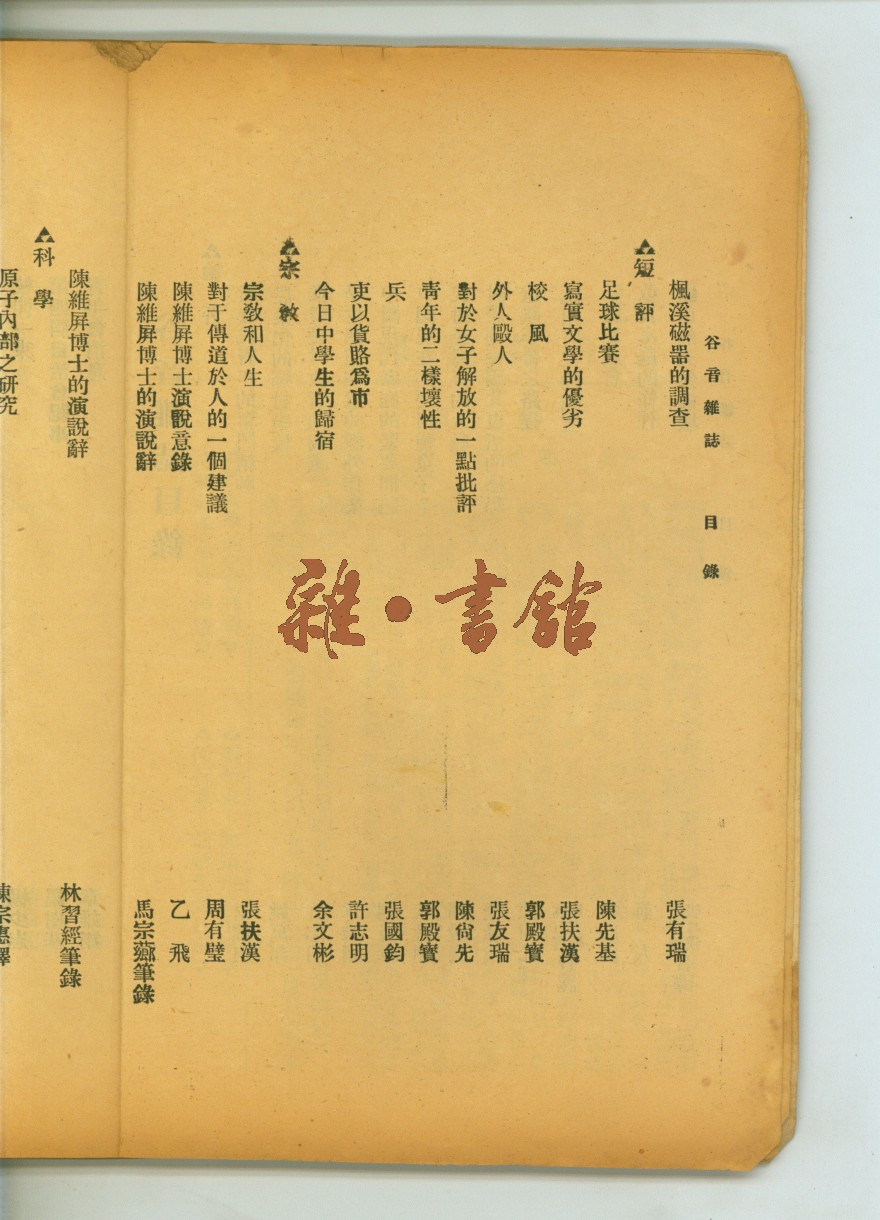 谷音雜誌 目錄
楓溪磁器的調查 張有瑞
▲短評
足球比賽 陳先基
寫實文學的優劣 張扶漢
校風 郭殿寶
外人毆人 張友瑞
對於女子解放的一點批評 陳尙先
靑年的二樣壞性 郭殿寶
兵 張國鈞
吏以貨賂爲市 許志明
今日中學生的歸宿 余文彬
▲宗敎
宗敎和人生 張扶漢
對于傳道於人的一個建議 周有璧
陳維屛博士演說意錄 乙飛
陳維屛博士的演說辭 馬宗薌筆錄
陳維屛博士的演說辭 林習經筆錄
▲科學
原子內部之硏究 陳宗惠譯
雜·書館